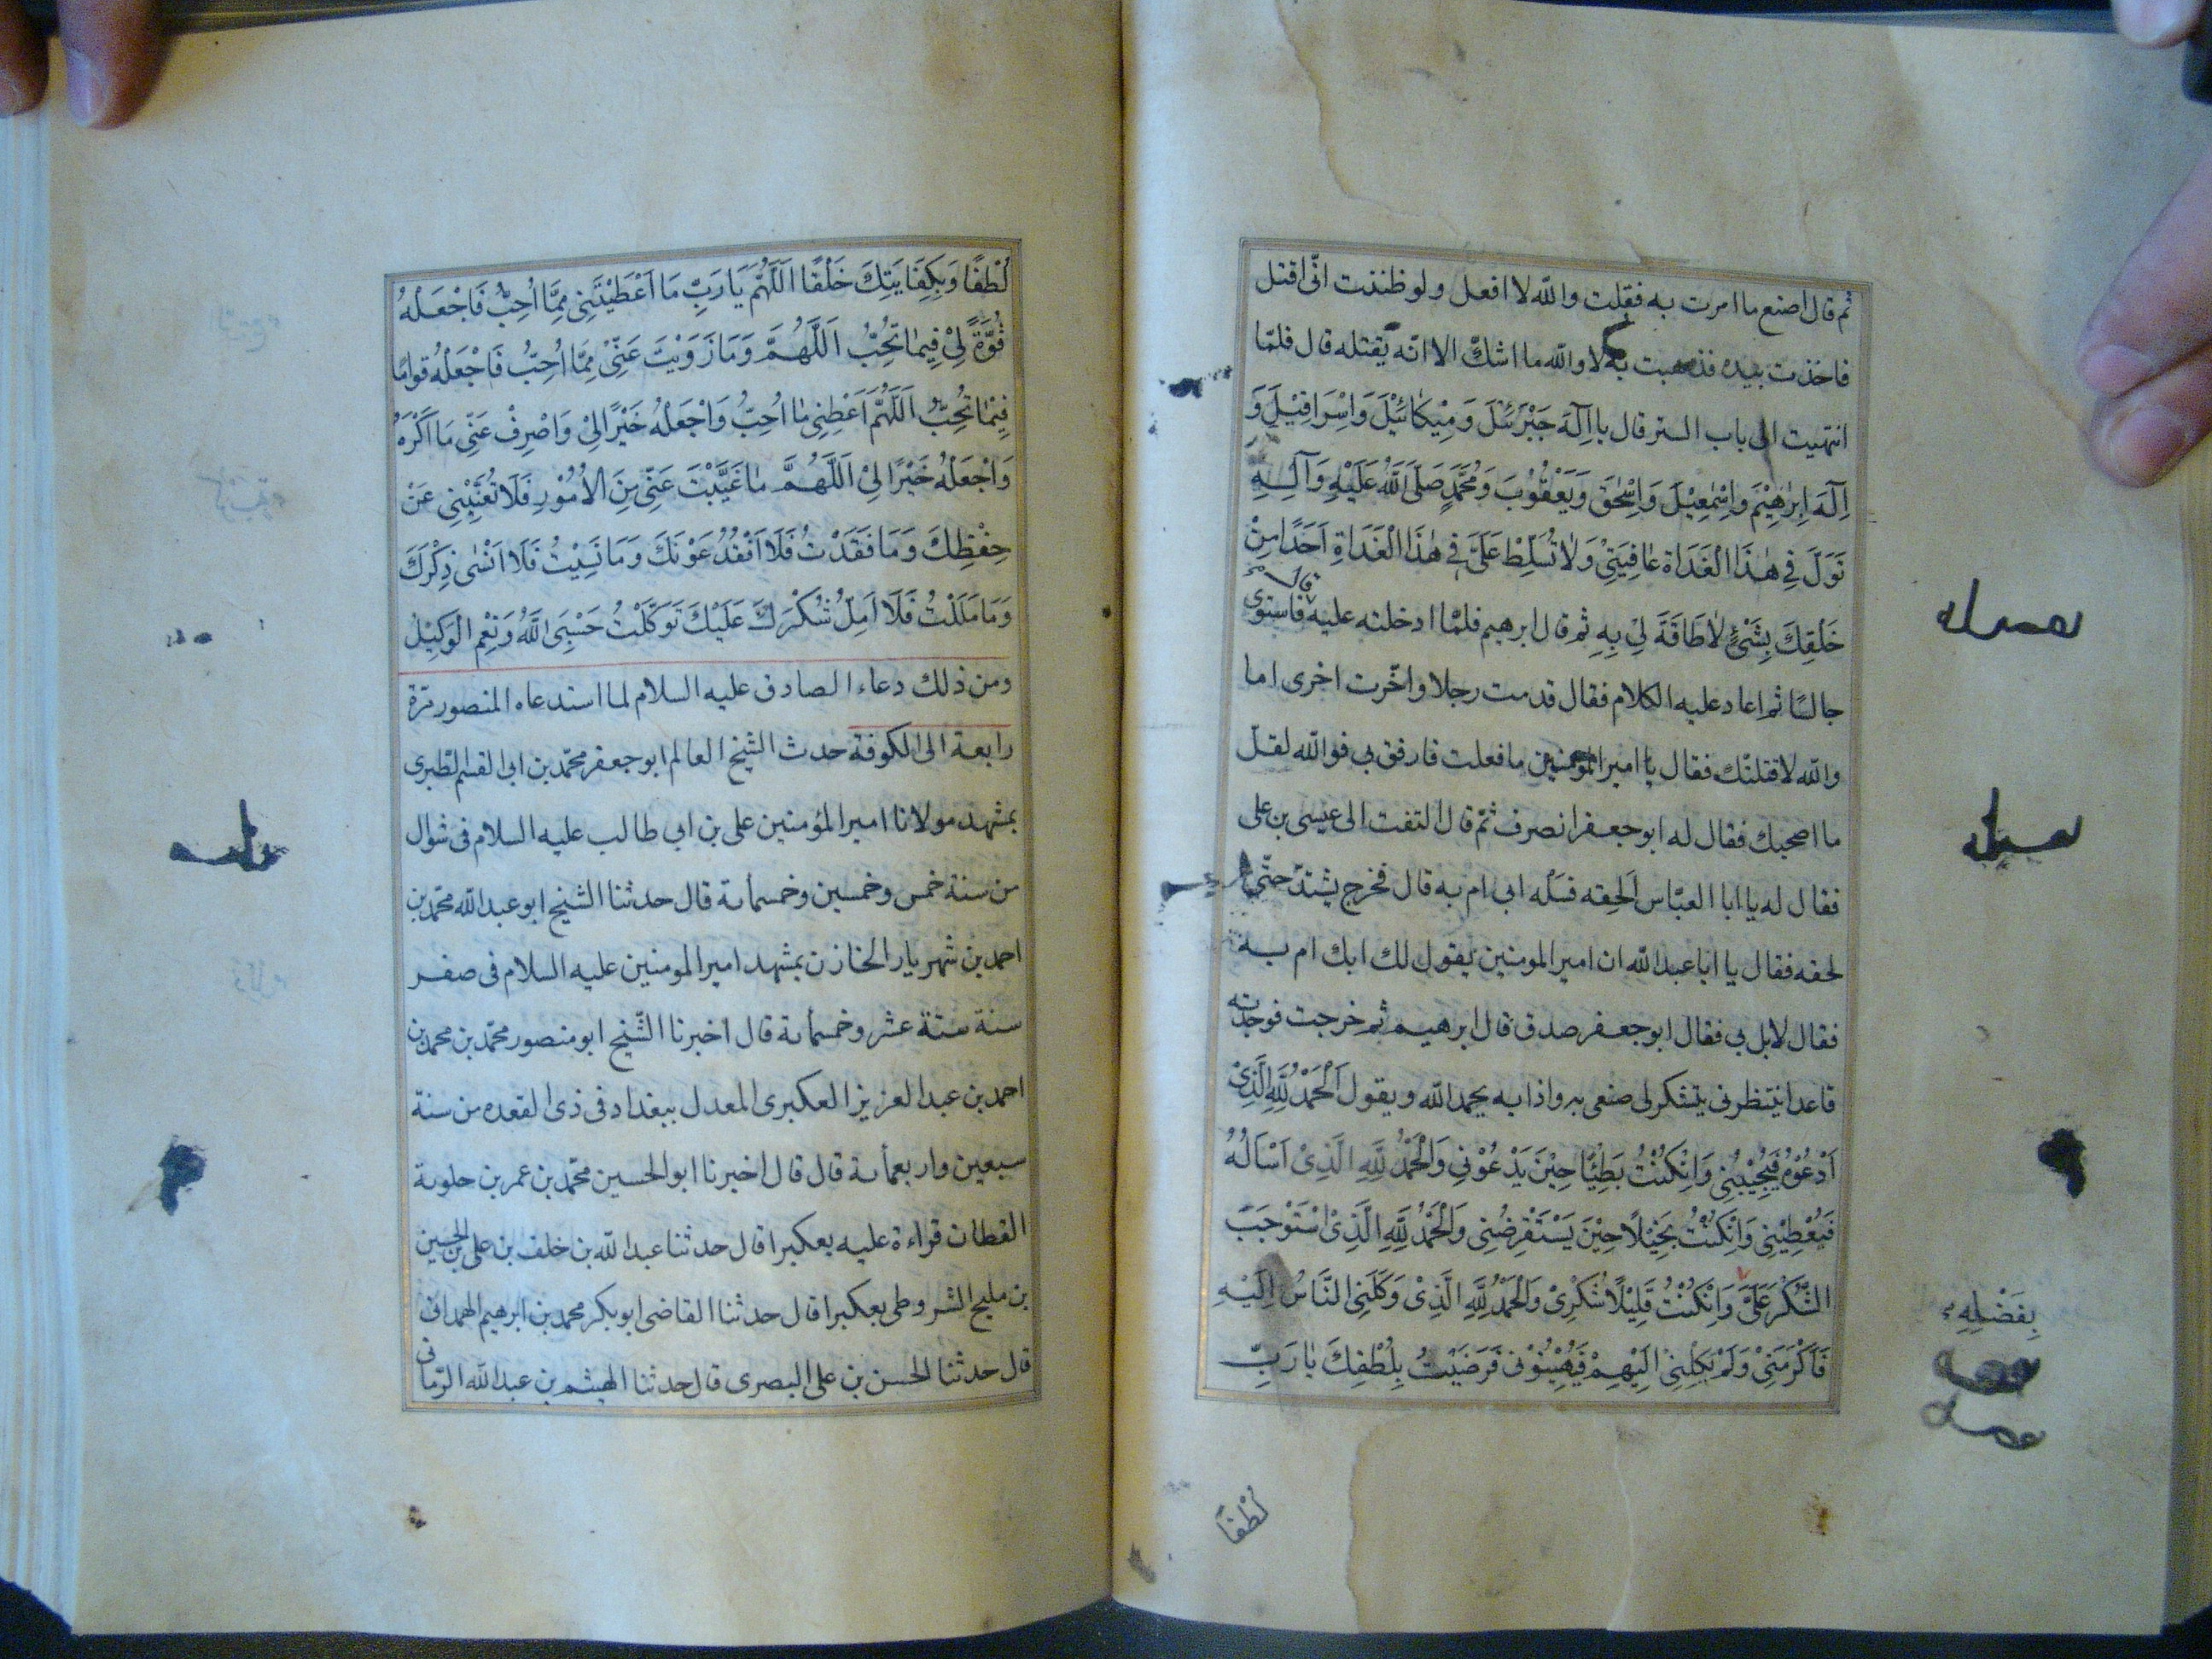 ثم قال اصنع ما امرت به فقلت والله لا افعل ولو ظننت انّى اقتل
فاخذت بيده فذهبت به لا والله ما اشكّ الا انّه يقتله قال فلمّا
انتهيت الى باب الستر قال يا اِلٰهَ جَبْرَئيلَ وَمِيْكَائيْلَ وَاِسْرَافِيْلَ وَ
اِلٰهَ اِبْرٰهِيْمَ وَاِسْمٰعِيْلَ وَاِسْحٰقَ وَيَعْقُوْبَ وَمُحَمَّدٍ صَلَى اللَّهُ عَلَيْهِ وَآلِهِ
تَوَلَّ فِى هٰذَا الْغَدَاةِ عَافِيَتِىْ وَلَا تُسَلِطْ عَلَىَّ فِى هٰذَا الْغَدَاةِ اَحَدًا مِنْ
خَلْقِكَ بِشَىْءٍ لَا طَاقَةَ لِىْ بِهِ ثم قال ابرهيم فلمّا ادخلته عليه قال فاستوى
جالسًا ثم اعاد عليه الكلام فقال قدمت رجلا واخّرت اخرى اما
والله لاقتلنّك فقال يا امير المؤمنين ما فعلت فارفق بى فوالله لقلّ
ما اصحبك فقال له ابو جعفر انصرف ثمّ قال التفت الى عيسى بن على
فقال له يا ابا العبّاس اَلحِقه فسَله ابى ام به قال فخرج يشتدّ حتّى
لحقه فقال يا ابا عبد الله ان امير المومنين يقول لك ابك ام به
فقال لا بل بى فقال ابو جعفر صدق قال ابرهيم ثم خرجت فوجدته
قاعدا ينتظرنى يتشكر لى صنعى به واذا به يحمد الله ويقول اَلْحَمْدُ لِلَّهِ الَّذِى
اَدْعُوْهُ فَيُجِيْبُنِى وَاِنْ كُنْتُ بَطِيْئًا حِيْنَ يَدْعُوْنِى وَالْحَمْدُ لِلَّهِ الَّذِىْ اَسْأَلُهُ
فَيُعْطِيْنِى وَاِنْ كُنْتُ بَخِيْلًا حِيْنَ يَسْتَقْرِضُنِى وَالْحَمْدُ لِلَّهِ الَّذِىْ اسْتَوْجَبَ
الشُّكْرَ عَلَىَّ وَاِنْ كُنْتُ قَلِيْلًا شُكْرِىْ وَالْحَمْدُ لِلَّهِ الَّذِىْ وَكَلَنِى النَّاسُ اِلَيْهِ
فَاَكْرَمَنِىْ وَلَمْ يَكِلْنِىْ اِلَيْهِمْ فَيُهِيْنُوْنِى فَرَضَيْتُ بِلُطْفِكَ يَا رَبِّ
بِفَضْلِهِ
لُطْفًا
لُطْفًا وَبِكِفَايَتِكَ خَلْقًا اَللَّهُمَّ يَا رَبِّ مَا اَعْطَيْتَنِى مِمَّا اُحِبُّ فَاجْعَلْهُ
قُوَّةً لِىْ فِيمَا تُحِبُّ اَللَّهُمَّ وَمَا زَوَيْتَ عَنِّىْ مِمَّا اُحِبُّ فَاجْعَلْهُ قوامًا
فِيْمَا تُحِبُّ اَللَّهُمَّ اَعْطِنِى مَا اُحِبُّ وَاجْعَلْهُ خَيْرًا لِىْ وَاصْرِفْ عَنِّى مَا اَكْرَهُ
وَاجْعَلْهُ خَيْرًا لِىْ اَللَّهُمَّ مَا غَيَّبْتَ عَنِّى مِنَ الْاُمُوْرِ فَلَا تُغَيِّبْنِى عَنْ
حِفْظِكَ وَمَا فَقَدْتُ فَلَا اَفْقُدُ عَوْنَكَ وَمَا نَسِيْتُ فَلَا اَنْسٰى ذِكْرَكَ
وَمَا مَلَلْتُ فَلَا اَمِلُّ شُكْرَكَ عَلَيْكَ تَوَكَّلْتُ حَسْبِىَ اللَّهُ وَنِعْمَ الْوَكِيْلُ
ومن ذلك دعاء الصادق عليه السلام لما استدعاه المنصور مرّة
رابعة الى الكوفة حدث الشيخ العالم ابو جعفر محمّد بن ابى القسم الطبرى
بمشهد مولانا امير المؤمنين على بن ابى طالب عليه السلام فى شوال
من سنة خمس وخمسين وخمسمأة قال حدثنا الشيخ ابو عبد الله محمّد بن
احمد بن شهريار الخازن بمشهد امير المومنين عليه السلام فى صفر
سنة ستة عشر وخمسمأة قال اخبرنا الشّيخ ابو منصور محمّد بن محمد بن
احمد بن عبد العزيز العكبرى المعدل ببغداد فى ذى القعده من سنة
سبعين واربعمأة قال قال اخبرنا ابو الحسين محمّد بن عمر بن حلوية
القطان قراءة عليه بعكبرا قال حدثنا عبد الله بن خلف بن على بن الحسين
بن مليح الشروطى بعكبرا قال حدثنا القاضى ابو بكر محمد بن ابرهيم الهمدانى
قال حدثنا الحسن بن على البصرى قال حدثنا الهيثم بن عبد الله الرّمانى